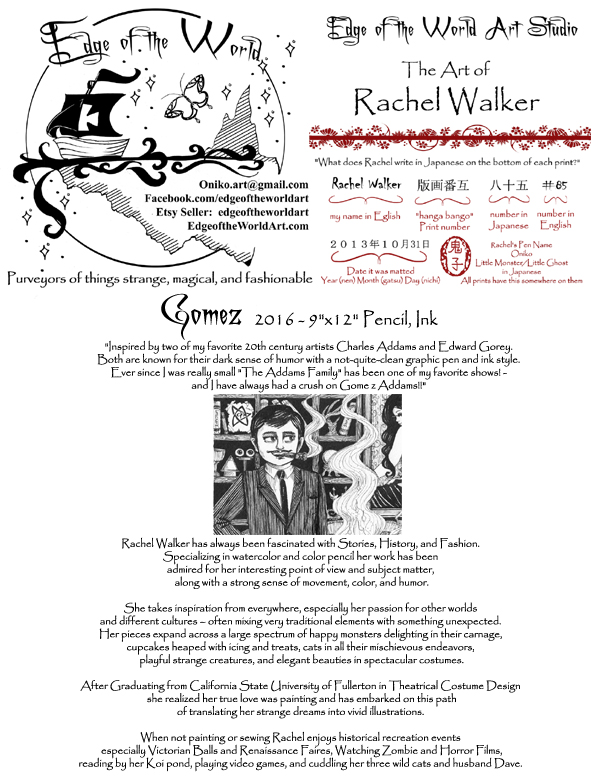 Edge of the World
Oniko.art@gmail.com
Facebook.com/edgeoftheworldart
Etsy Seller: edgeoftheworldart
EdgeoftheWorldArt.com
Purveyors of things strange, magical, and fashionable
Edge of the World Art Studio
The Art of
Rachel Walker
"What does Rachel write in Japanese on the bottom of each print?"
Rachel Walker 版画番互 八十五 #85
my name in Eglish "hanga bango" Print number number in Japanese number in English
2013年10月31日 鬼子
Date it was matted
Year (nen) Month (gatsu) Day (nichi)
Rachel's Pen Name
Oniko
Little Monster/Little Ghost
in Japanese
All prints have this somewhere on them
Gomez 2016 - 9"x12" Pencil, Ink
"Inspired by two of my favorite 20th century artists Charles Addams and Edward Gorey.
Both are known for their dark sense of humor with a not-quite-clean graphic pen and ink style.
Ever since I was really small "The Addams Family" has been one of my favorite shows! -
and I have always had a crush on Gome z Addams!!"
Rachel Walker has always been fascinated with Stories, History, and Fashion.
Specializing in watercolor and color pencil her work has been
admired for her interesting point of view and subject matter,
along with a strong sense of movement, color, and humor.
She takes inspiration from everywhere, especially her passion for other worlds
and different cultures – often mixing very traditional elements with something unexpected.
Her pieces expand across a large spectrum of happy monsters delighting in their carnage,
cupcakes heaped with icing and treats, cats in all their mischievous endeavors,
playful strange creatures, and elegant beauties in spectacular costumes.
After Graduating from California State University of Fullerton in Theatrical Costume Design
she realized her true love was painting and has embarked on this path
of translating her strange dreams into vivid illustrations.
When not painting or sewing Rachel enjoys historical recreation events
especially Victorian Balls and Renaissance Faires, Watching Zombie and Horror Films,
reading by her Koi pond, playing video games, and cuddling her three wild cats and husband Dave.